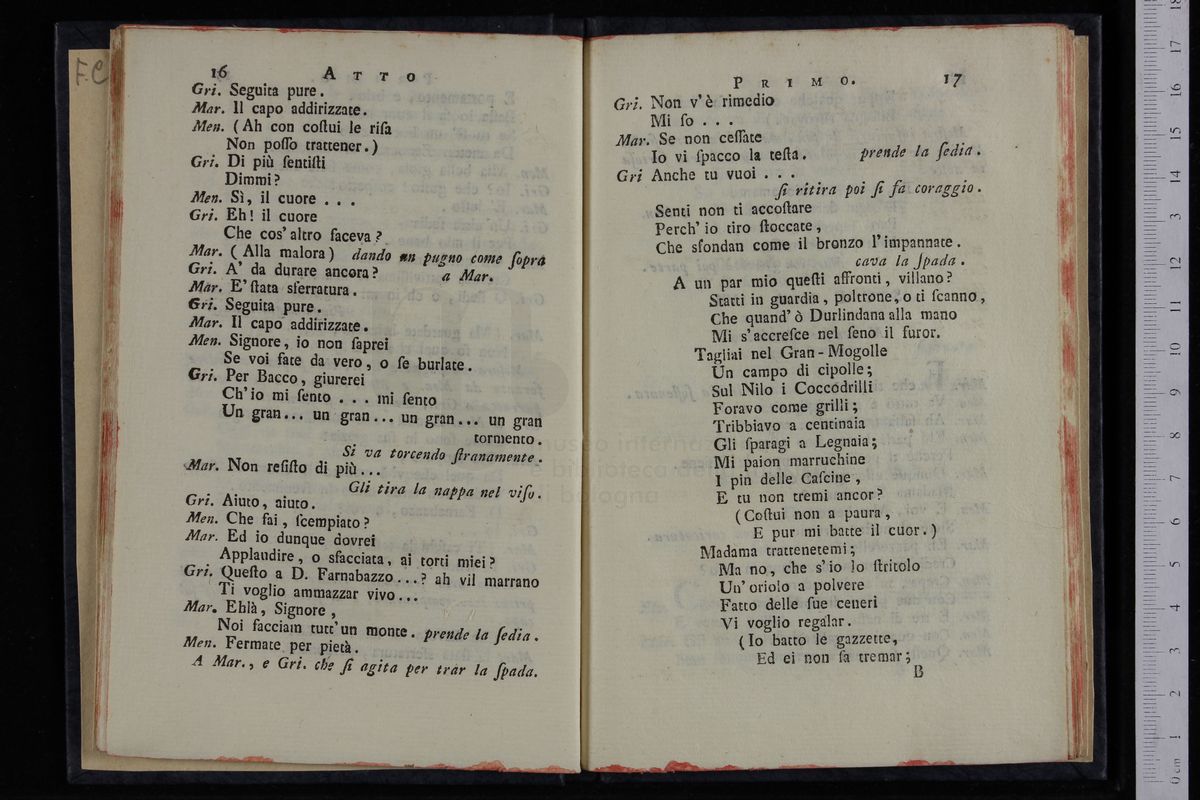 F.C
16 ATTO
Gri. Seguita pure.
Mar. Il capo addirizzate.
Men. (Ah con coſtui le riſa
Non poſſo trattener.)
Gri. Di più ſentiſti
Dimmi?
Men. Sì, il cuore . . .
Gri. Eh! il cuore
Che cos' altro faceva?
Mar. (Alla malora) dando un pugno come ſopra
Gri. A' da durare ancora? a Mar.
Mar. E' ſtata sferratura.
Gri. Seguita pure.
Mar. Il capo addirizzate.
Men. Signore, io non ſaprei
Se voi fate da vero, o ſe burlate.
Gri. Per Bacco, giurerei
Ch'io mi ſento . . . mi ſento
Un gran... un gran... un gran... un gran
tormento.
Si va torcendo ſtranamente.
Mar. Non reſiſto di più...
Gli tira la nappa nel viſo.
Gri. Aiuto, aiuto.
Men. Che fai, ſcempiato?
Mar. Ed io dunque dovrei
Applaudire, o sfacciata, ai torti miei?
Gri. Queſto a D. Farnabazzo...? ah vil marrano
Ti voglio ammazzar vivo...
Mar. Eblà, Signore,
Noi facciam tutt'un monte. prende la ſedia.
Men. Fermate per pietà.
A Mar., e Gri. che ſi agita per trar la ſpada.
PRIMO. 17
Gri. Non v'è rimedio
Mi ſo . . .
Mar. Se non ceſſate
Io vi ſpacco la teſta. prende la ſedia.
Gri Anche tu vuoi . . .
ſi ritira poi ſi fa coraggio.
Senti non ti accoſtare
Perch' io tiro ſtoccate,
Che sfondan come il bronzo l'impannate.
cava la ſpada.
A un par mio queſti affronti, villano?
Statti in guardia, poltrone, o ti ſcanno,
Che quand' ò Durlindana alla mano
Mi s'accreſce nel ſeno il furor.
Tagliai nel Gran-Mogolle
Un campo di cipolle;
Sul Nilo i Coccodrilli
Foravo come grilli;
Tribbiavo a centinaia
Gli ſparagi a Legnaia;
Mi paion marruchine
I pin delle Caſcine,
E tu non tremi ancor?
(Coſtui non a paura,
E pur mi batte il cuor.)
Madama trattenetemi;
Ma no, che s'io lo ſtritolo
Un' oriolo a polvere
Fatto delle ſue ceneri
Vi voglio regalar.
(Io batto le gazzette,
Ed ei non fa tremar;
B